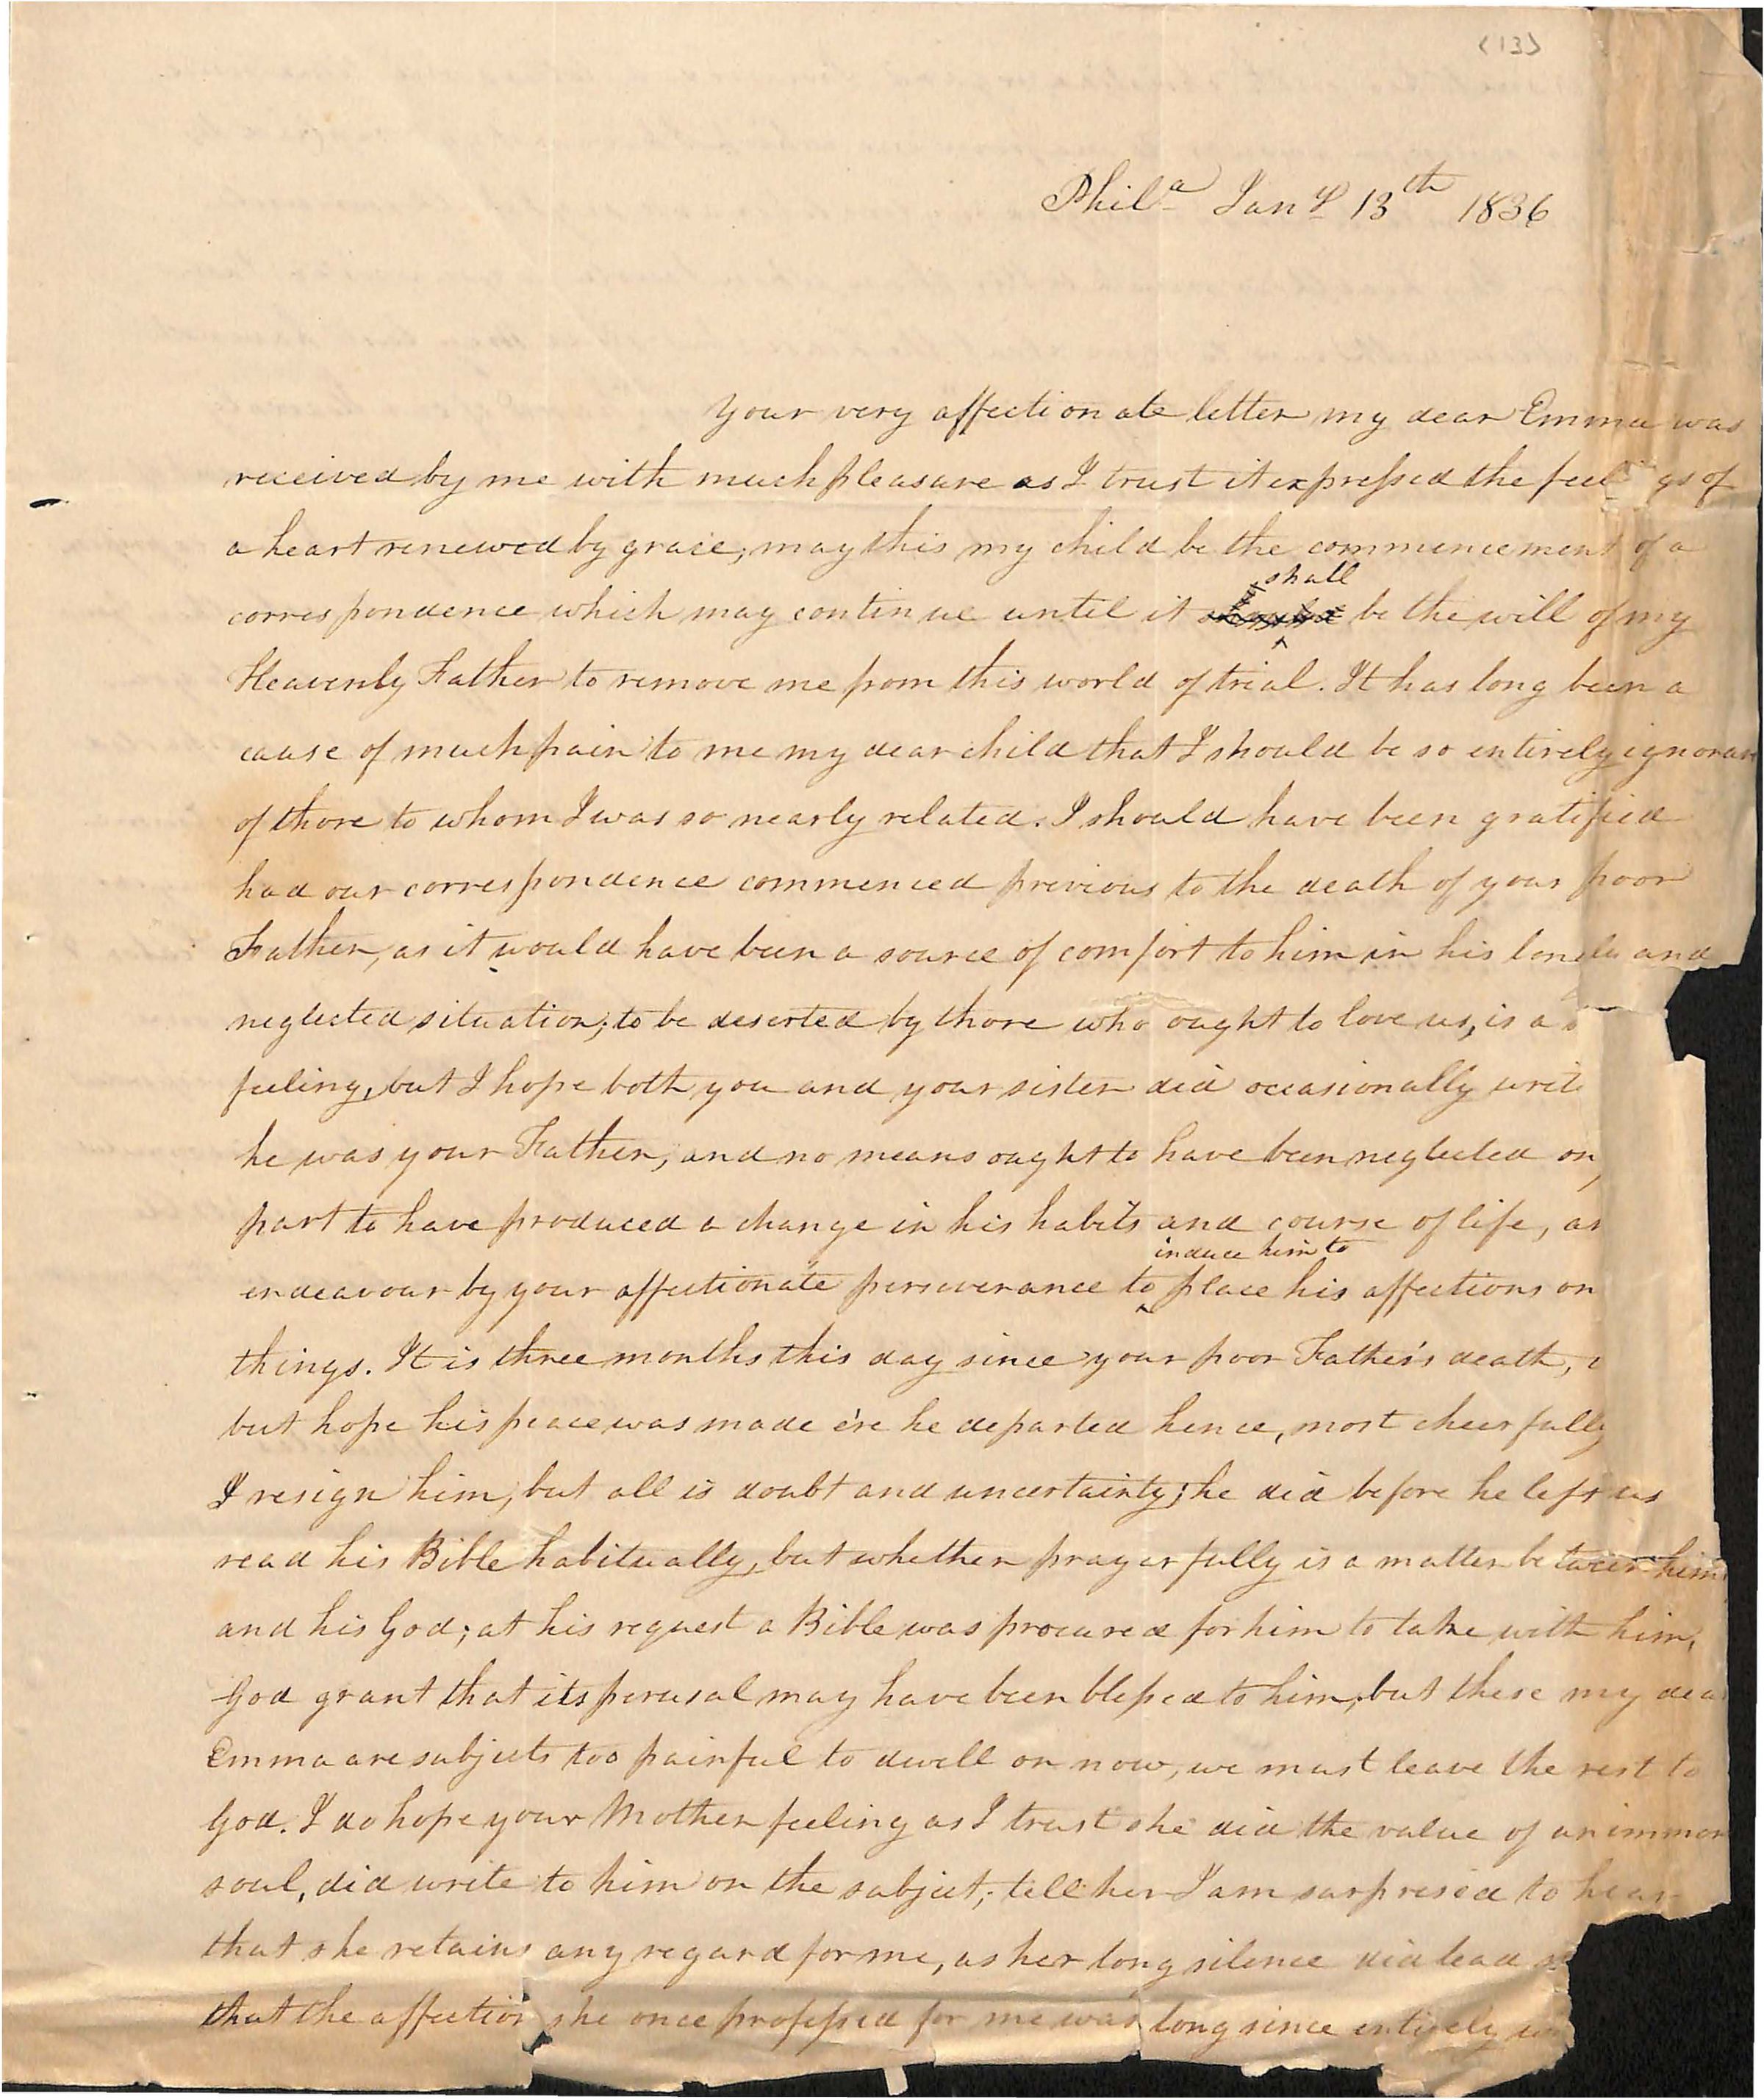 (13)
Phila Jany 13th 1836
Your very affectionate letter my dear Emma was
received by me with much pleasure as I trust it expressed the feel gs of
a heart renewed by grace; may this my child be the commencement of a
shall
correspondence which may continue until it be the will of my
Heavenly Father to remove me from this world of trial. It has long been a
cause of much pain to me my dear child that I should be so entirely ignoran
of those to whom I was so nearly related. I should have been gratified
had our correspondence commenced previous to the death of your poor
Father, as it would have been a source of comfort to him in his lonely and
neglected situation; to be deserted by those who ought to love us, is a
feeling, but I hope both you and your sister did occasionally write
he was your Father, and no means ought to have been neglected on
part to have produced a change in his habits and course of life, an
induce him to
endeavour by your affectionate perseverance to place his affections on
things. It is three months this day since your poor Father's death,
but hope his peace was made e're he departed hence, most cheerfully
I resign him, but all is doubt and uncertainty; he did before he left us
read his Bible habitually, but whether prayerfully is a matter between him
and his God; at his request a Bible was procured for him to take with him,
God grant that its perusal may have been blessed to him, but these my dea
Emma are subjects too painful to dwell on now, we must leave the rest to
God. I do hope your Mother feeling as I trust she did the value of an immor
soul, did write to him on the subject; tell her I am surprised to hear
that she retains any regard for me, as her long silence did lead
that the affection she once professed for me was long since entirely